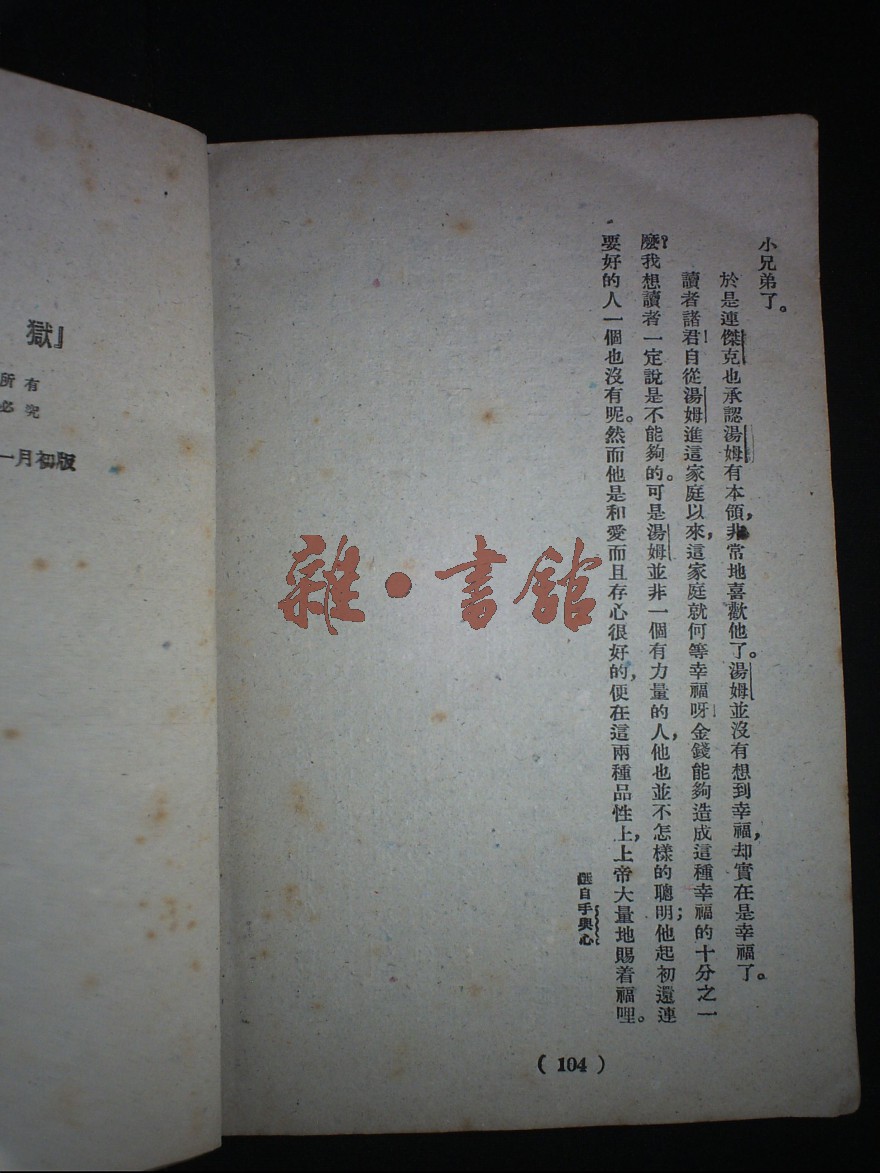 小兄弟了。
於是連傑克也承認湯姆有本領,非常地喜歡他了。湯姆並沒有想到幸福,却實在是幸福了。
讀者諸君!自從湯姆進這家庭以來,這家庭就何等幸福呀!金錢能夠造成這種幸福的十分之一
麼?我想讀者一定說是不能夠的。可是湯姆並非一個有力量的人,他也並不怎樣的聰明;他起初還連
要好的人一個也沒有呢。然而他是和愛而且存心很好的,便在這兩種品性上,上帝大量地賜着福哩。
選自手與心
( 104 )
獄』
所有
必究
一月初版
雜·書館